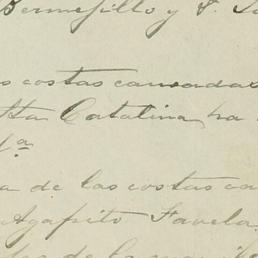 Bermejillo y F.
s costas causadas
tta Catalina, ha
1ª
a de las costas ca
Agapito Favela